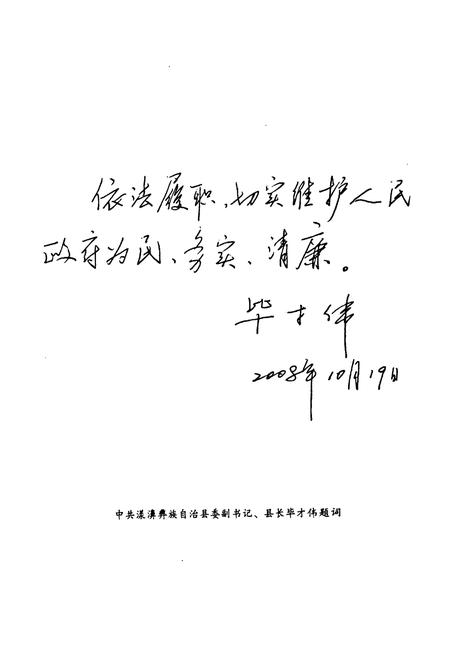 依法履职、切实维护人民
政府为民、务实、清廉。
毕才伟
2008年10月19日
中共漾濞彝族自治县委副书记、县长毕才伟题词